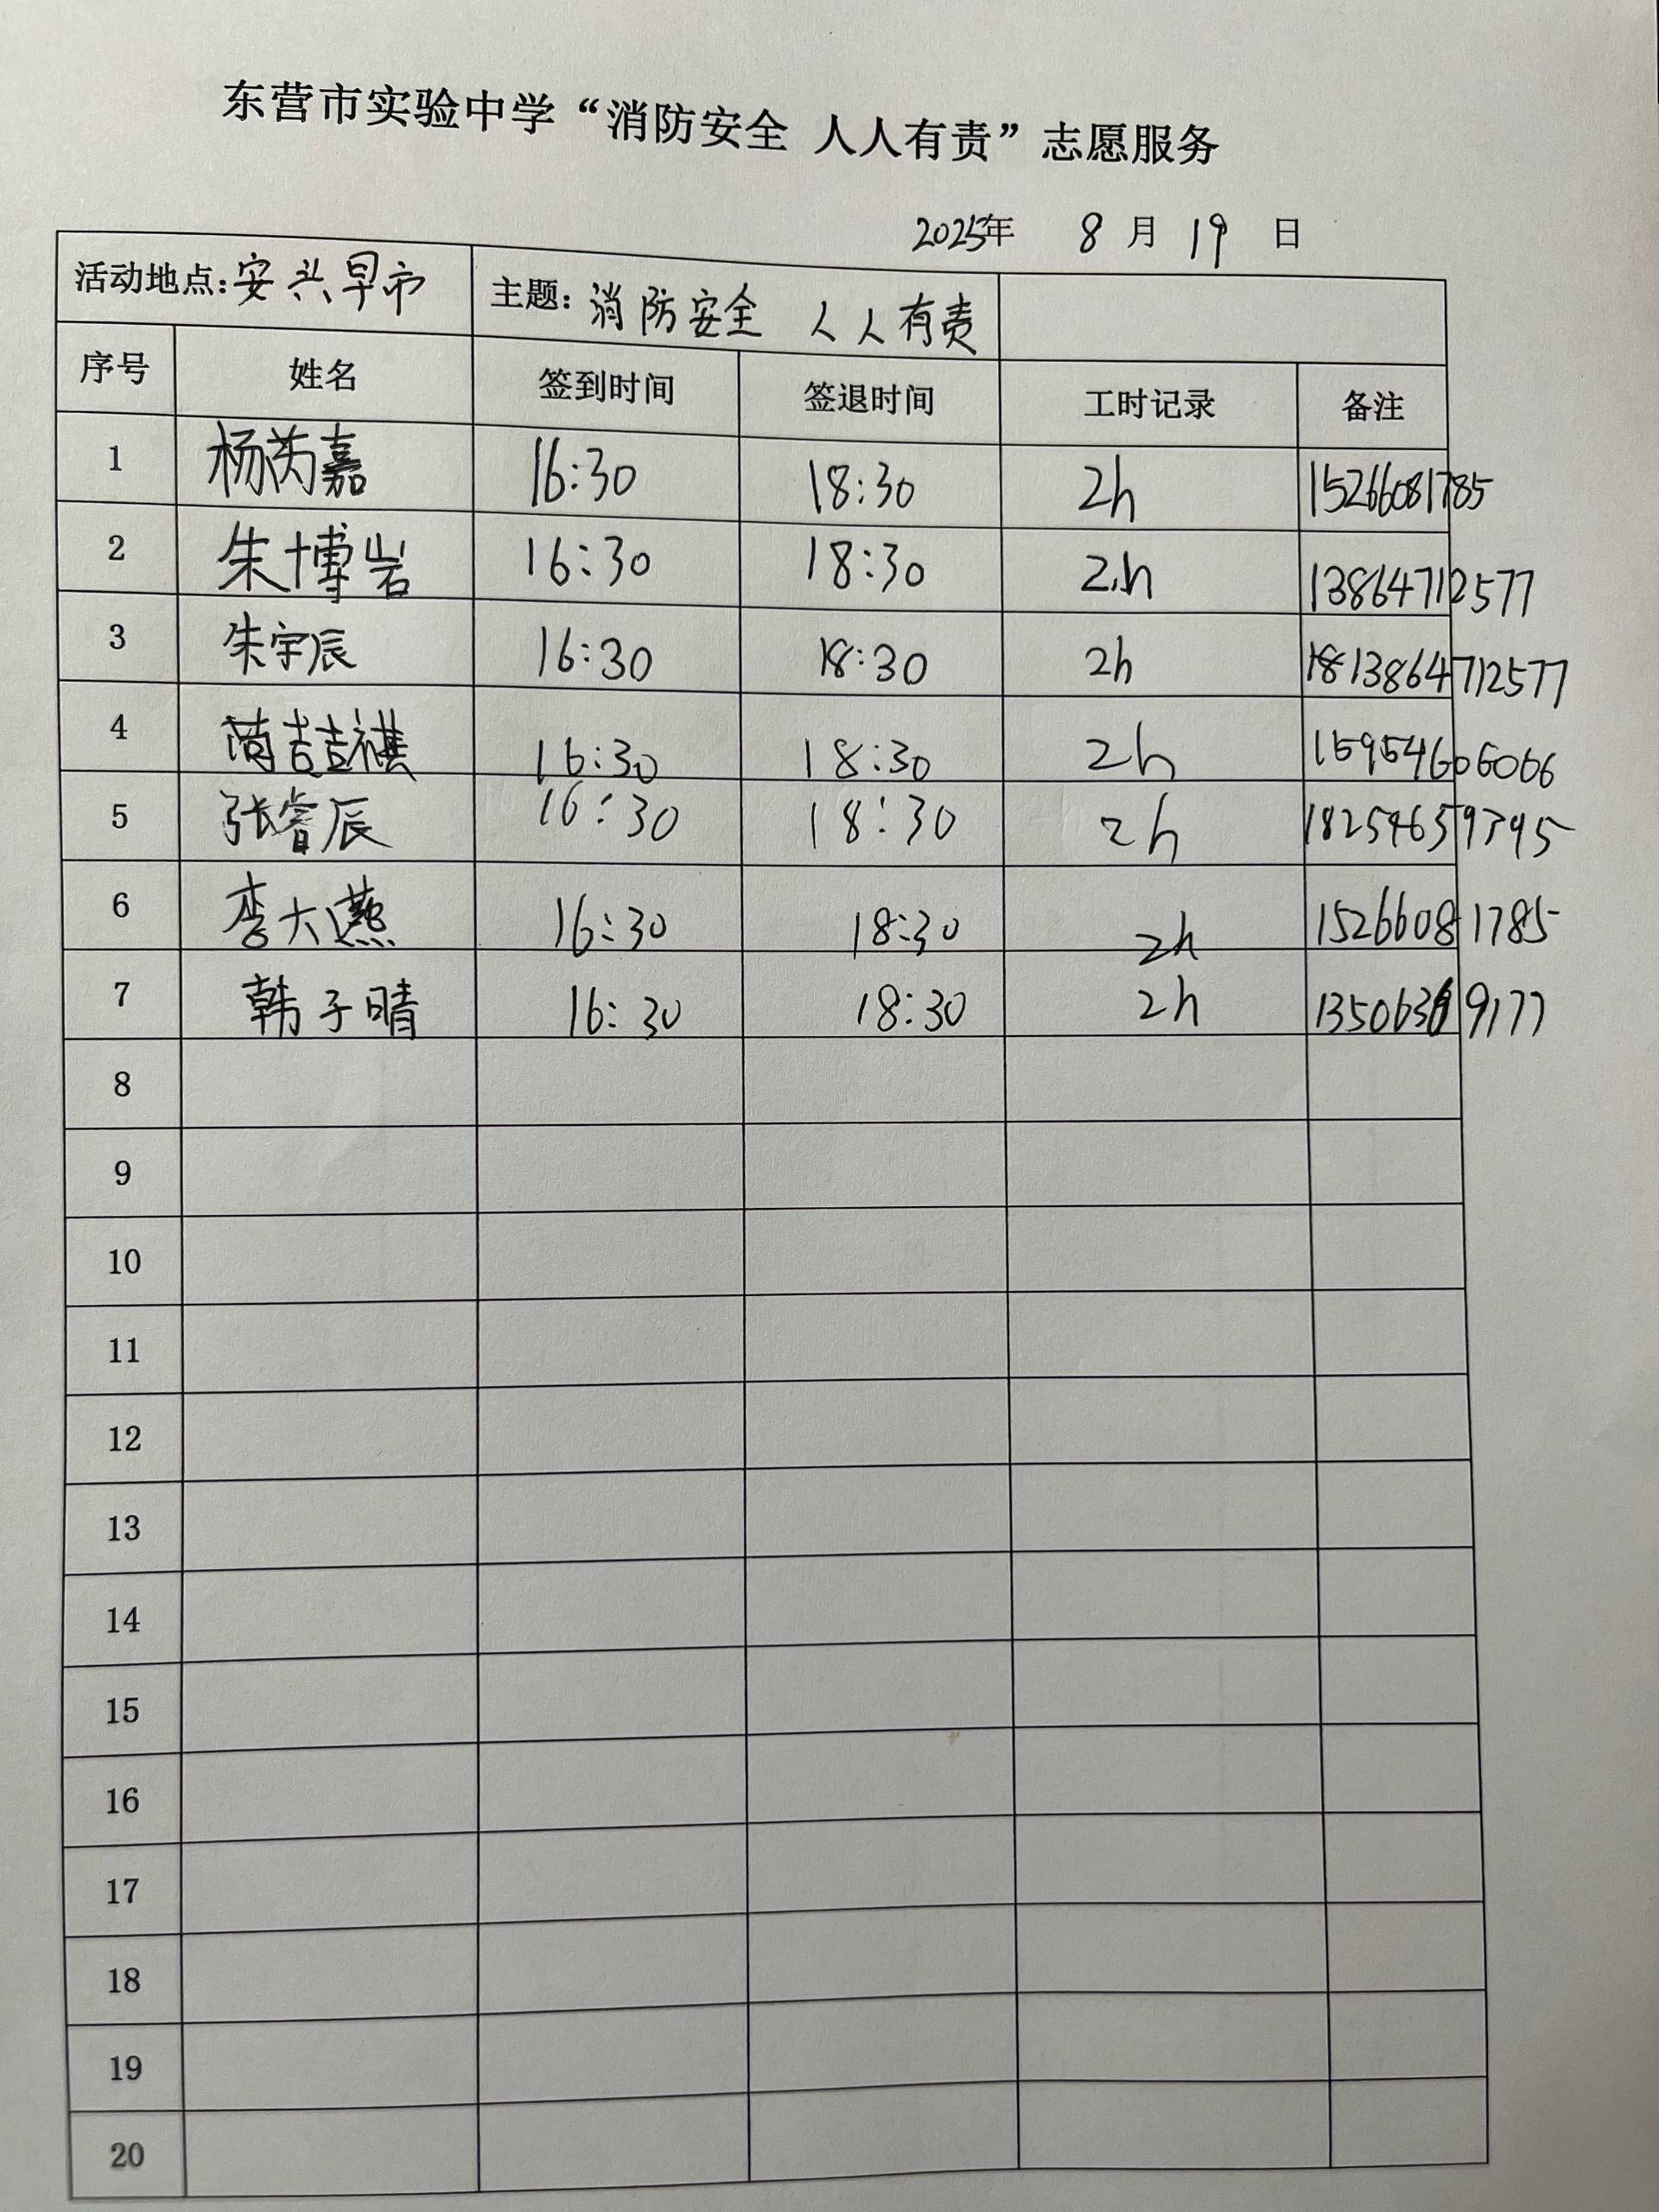 东营市实验中学“消防安全 人人有责”志愿服务
2025年 8 月 19 日
活动地点:安兴早市 主题:消防安全 人人有责
序号 姓名 签到时间 签退时间 工时记录 备注
1 杨芮嘉 16:30 18:30 2h 15266081785
2 朱博岩 16:30 18:30 2h 13864712577
3 朱宇辰 16:30 18:30 2h 13864712577
4 16:30 18:30 2h 15954606066
5 张睿辰 16:30 18:30 2h 18254659795
6 李大燕 16:30 18:30 2h 15266081785
7 韩子晴 16:30 18:30 2h
8
9
10
11
12
13
14
15
16
17
18
19
20